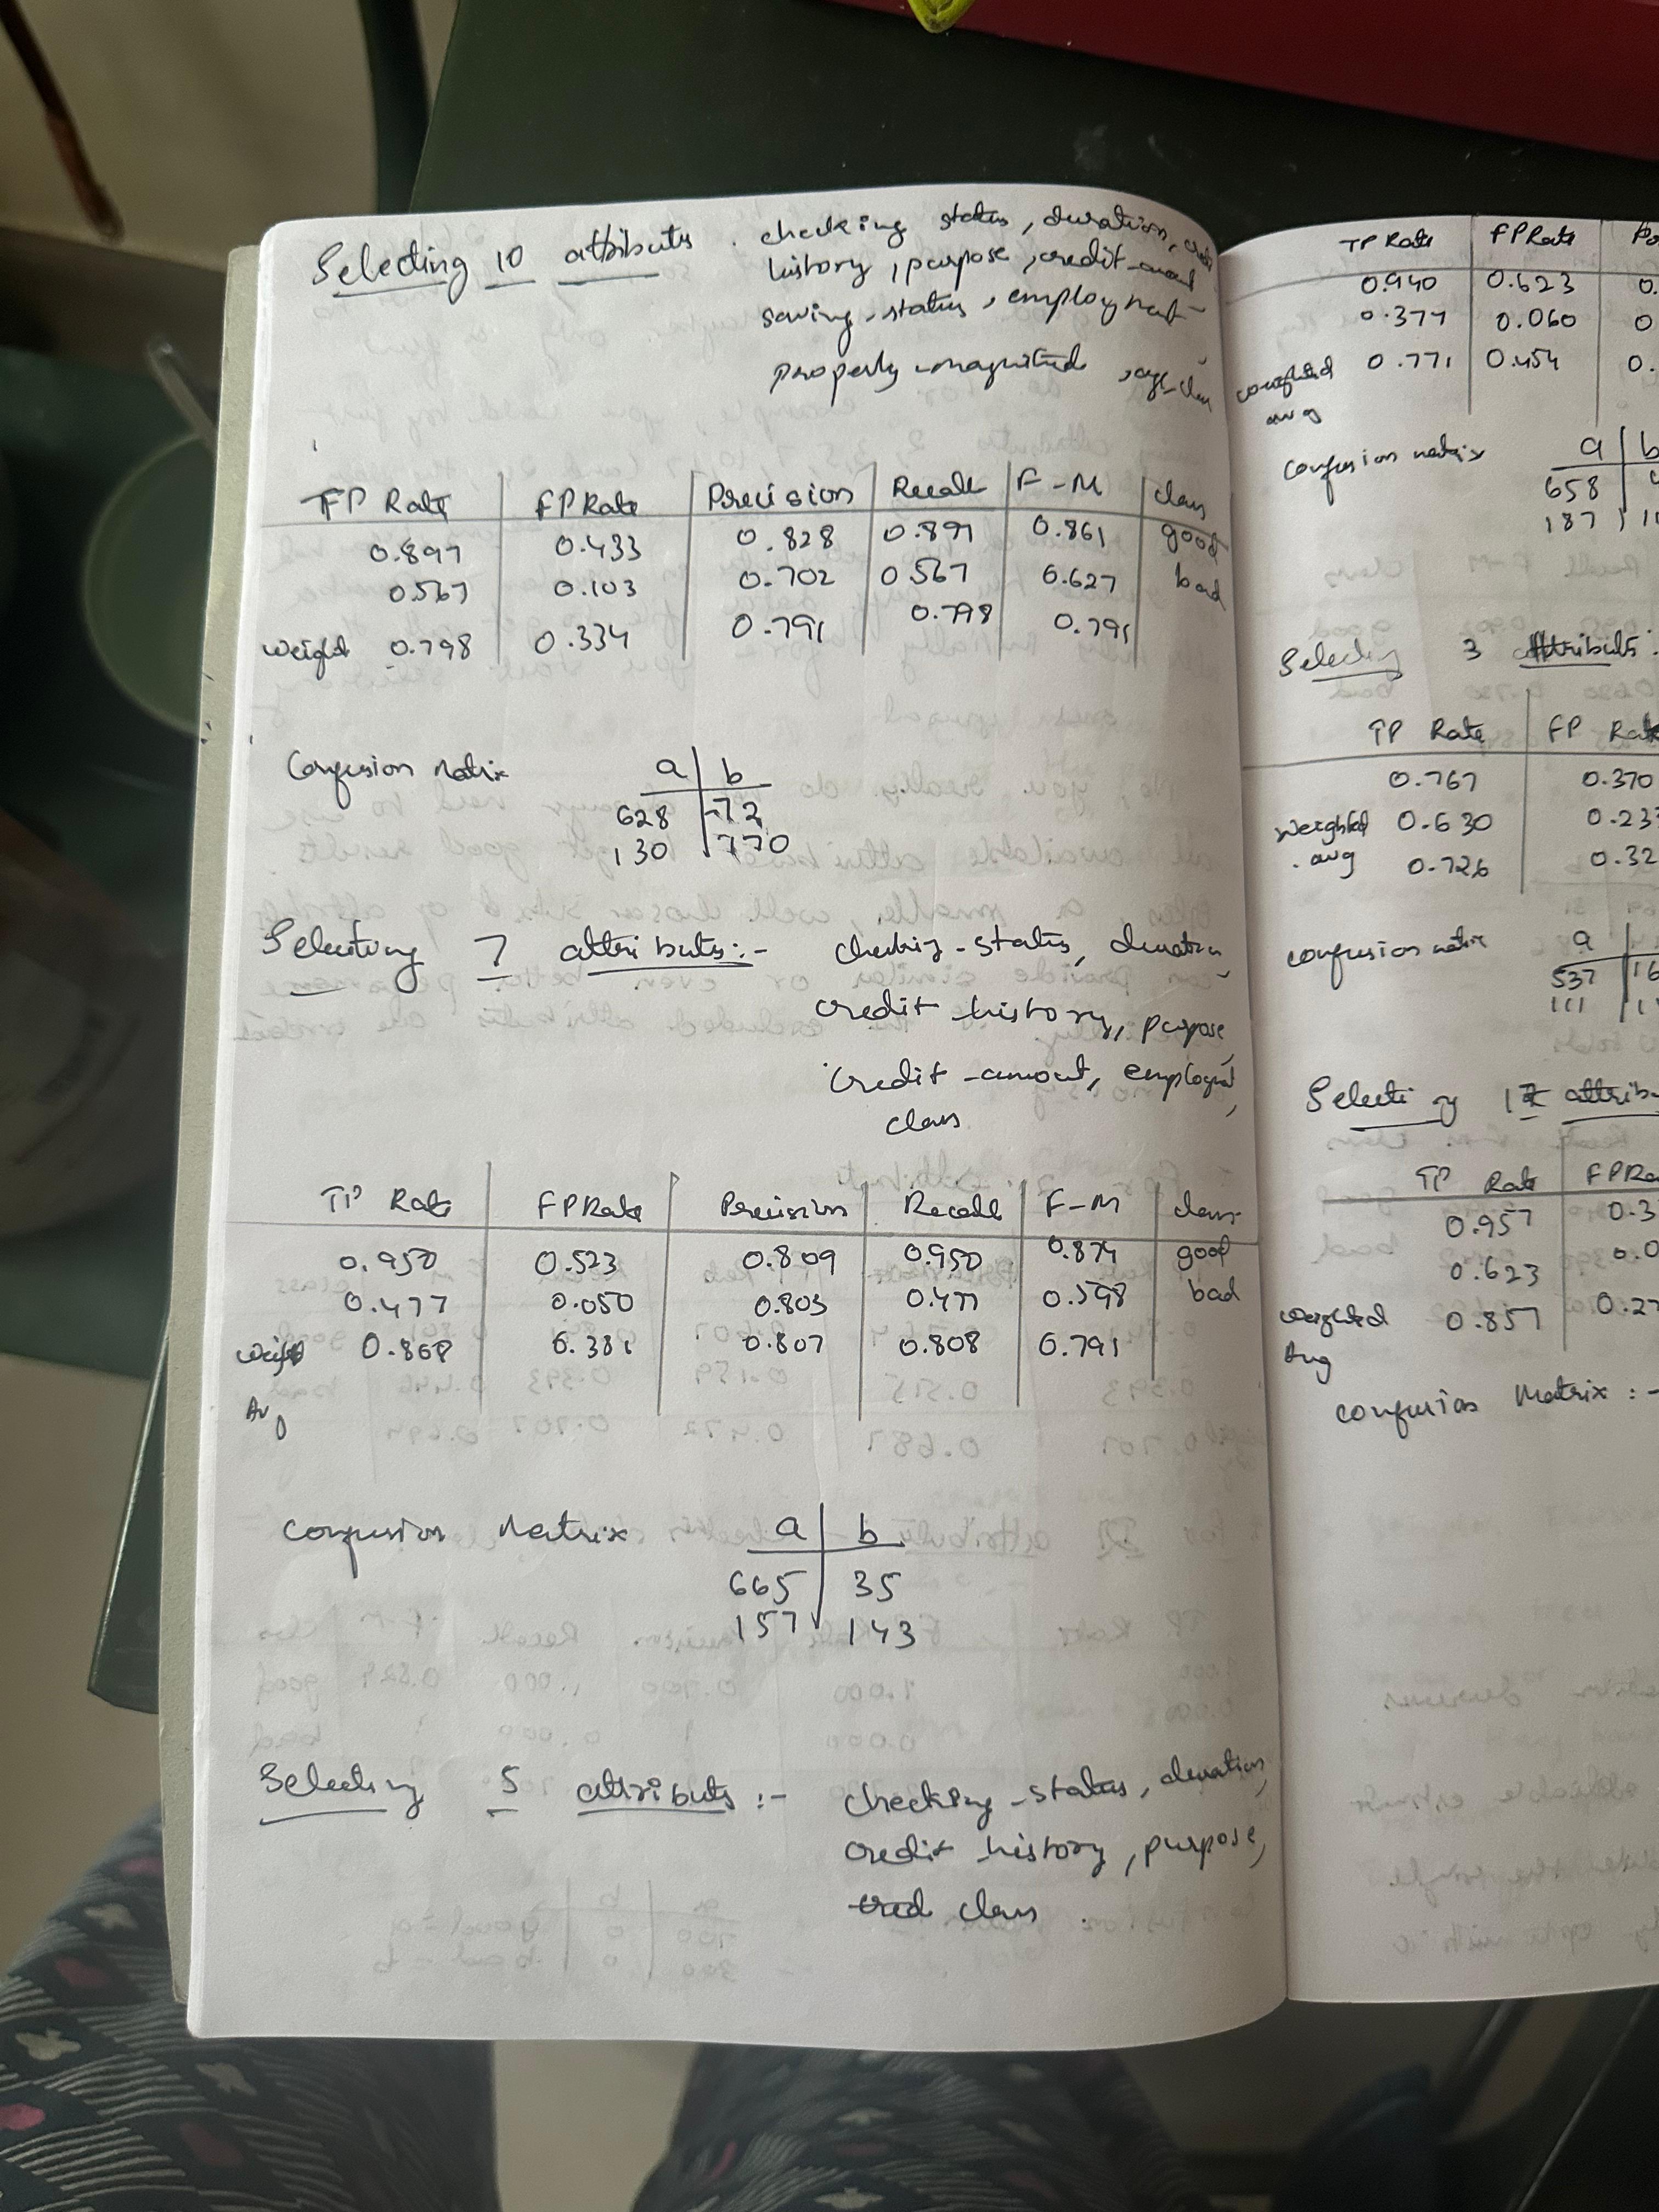 Selecting 10 attributes . checking status, duration,
history, purpose, credit-amount
saving-status, employment
property-magnitude, age, class
TP Rate FP Rate Precision Recall F-M class
0.897 0.433 0.828 0.897 0.861 good
0.567 0.103 0.702 0.567 0.627 bad
Weight 0.798 0.334 0.791 0.798 0.791
Confusion Matrix a b
628 72
130 770
Selecting 7 attributes:- checking-status, duration
credit-history, purpose,
credit-amount, employment,
class
TP Rate FP Rate Precision Recall F-M class
0.950 0.523 0.809 0.950 0.874 good
0.477 0.050 0.803 0.477 0.598 bad
Weight 0.381 0.807 0.808 0.791
Avg
Confusion Matrix a b
665 35
157 143
Selecting 5 attributes :- checking-status, duration,
credit history, purpose,
class .
TP Rate FP Rate
0.940 0.623 0.
0.377 0.060 0
weighted 0.771 0.454 0.
avg
Confusion matrix a b
658
187
Selecting 3 attributes:
TP Rate FP Rate
0.767 0.370
Weighted 0.630 0.233
avg 0.726 0.32
confusion matrix a
537 16
111 1
Selecting attrib
TP Rate FP Ra
0.957 0.3
0.623 0.0
weighted 0.857 0.27
Avg
Confusion Matrix :-